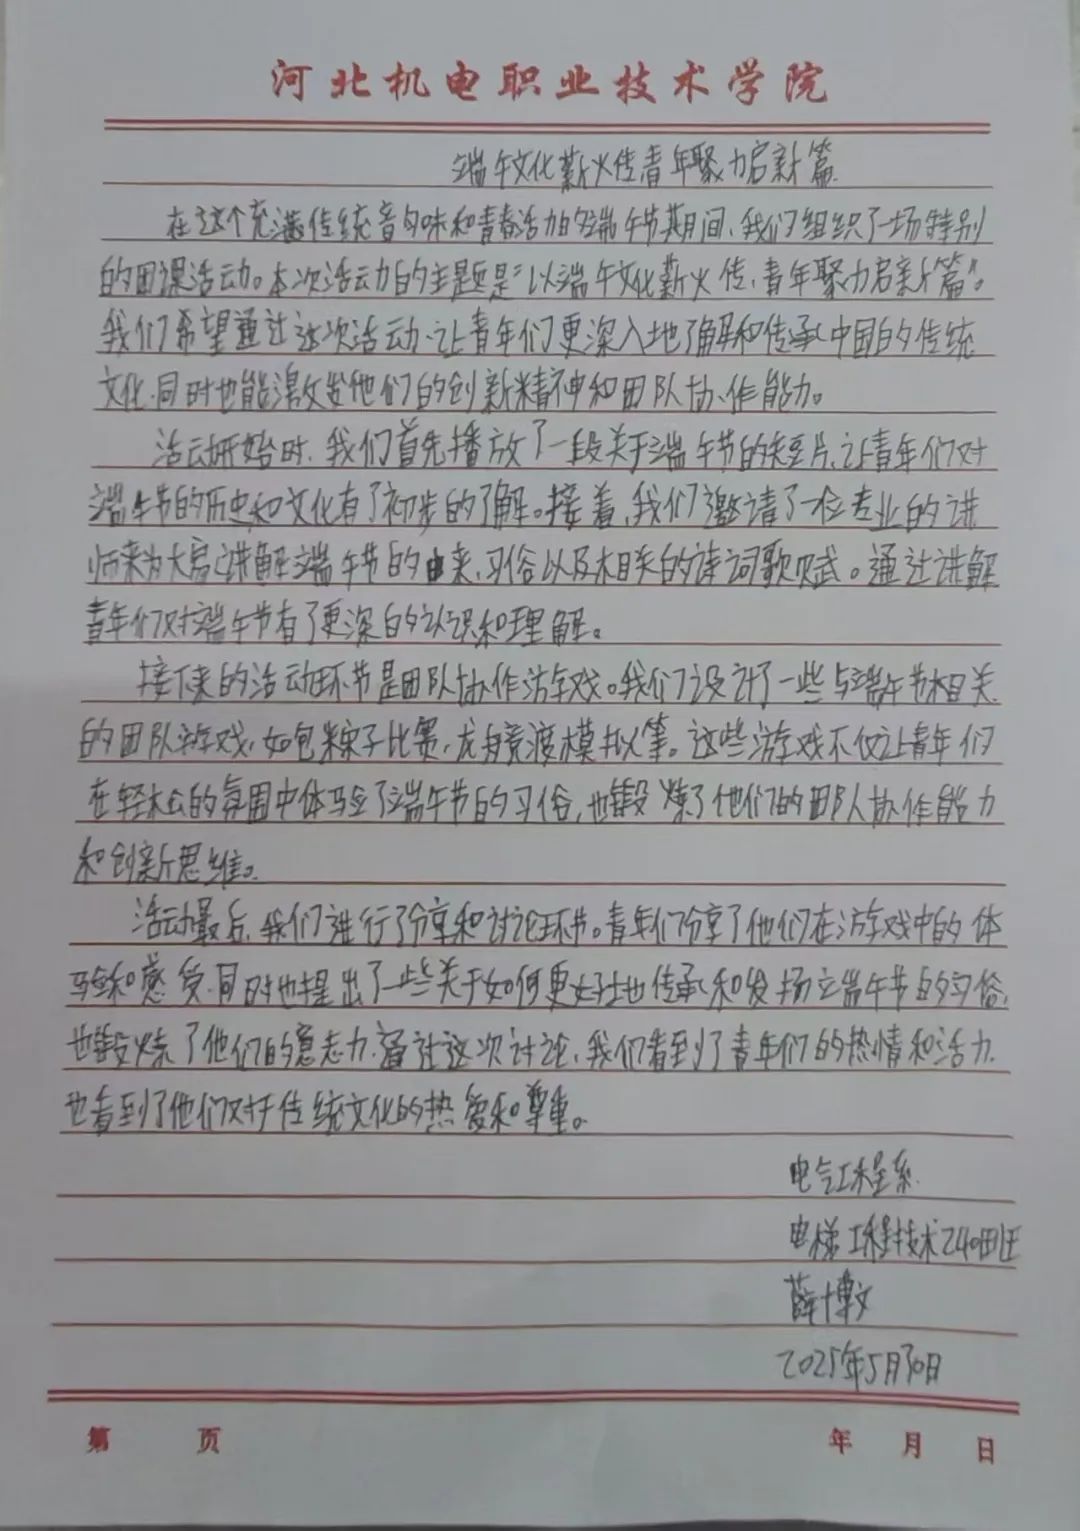 河北机电职业技术学院
端午文化薪火传青年聚力启新篇
在这个充满传统韵味和青春活力的端午节期间,我们组织了一场特别
的团课活动。本次活动的主题是“以端午文化薪火传,青年聚力启新篇”。
我们希望通过这次活动,让青年们更深入地了解和传承中国的传统
文化,同时也能激发他们的创新精神和团队协作能力。
活动开始时,我们首先播放了一段关于端午节的短片,让青年们对
端午节的历史和文化有了初步的了解。接着,我们邀请了一位专业的讲
师来为大家讲解端午节的由来,习俗以及相关的诗词歌赋。通过讲解
青年们对端午节有了更深的认识和理解。
接下来的活动环节是团队协作游戏。我们设计了一些与端午节相关
的团队游戏,如包粽子比赛,龙舟竞渡模拟等。这些游戏不仅让青年们
在轻松的氛围中体验了端午节的习俗,也锻炼了他们的团队协作能力
和创新思维。
活动最后,我们进行了分享和讨论环节。青年们分享了他们在游戏中的体
验和感受,同时也提出了一些关于如何更好地传承和发扬端午节的习俗,
也锻炼了他们的意志力,通过这次讨论,我们看到了青年们的热情和活力,
也看到了他们对于传统文化的热爱和尊重。
电气工程系
电梯工程技术2401班
薛博文
2025年5月30日
第 页 年 月 日